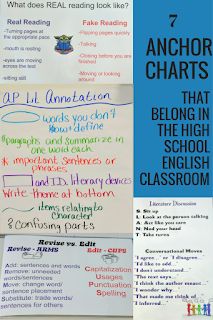 What does REAL reading look like?
Real Reading
-Turning pages at the appropriate pace
-mouth is resting
-eyes are moving across the text
-sitting still
Fake Reading
-Flipping pages quickly
-Talking
-Closing before you are finished
-Moving or looking around
AP Lit Annotation
words you don't know + define
#paragraphs and summarize in one word each
* important sentences or phrases
and I.D. literary devices
Write theme at bottom
items relating to character
? confusing parts
Revise vs. Edit
Revise - ARMS
Add: sentences and words
Remove: unneeded words/sentences
Move: change word/sentence placement
Substitute: trade words/sentences for others
Edit - CUPS
Capitalization
Usages
Punctuation
Spelling
7
ANCHOR
CHARTS
THAT
BELONG IN
THE HIGH
SCHOOL
ENGLISH
CLASSROOM
Literature Discussion
S Sit up
L Look at the person talking
A Act like you care
N Nod your head
T Take turns
Conversational Moves
I agree... or I disagree...
I'd like to add...
I don't understand...
The text says...
I think the author meant...
I wonder why...
That made me think of...
I inferred...